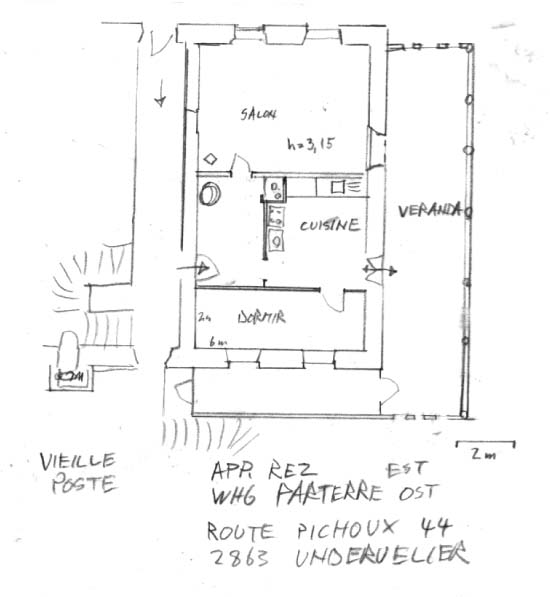 SALON
h=3,15
VERANDA
CUISINE
DORMIR
6m
2m
VIEILLE
POSTE
APP. REZ EST
WHG PARTERRE OST
ROUTE PICHOUX 44
2863 UNDERVELIER